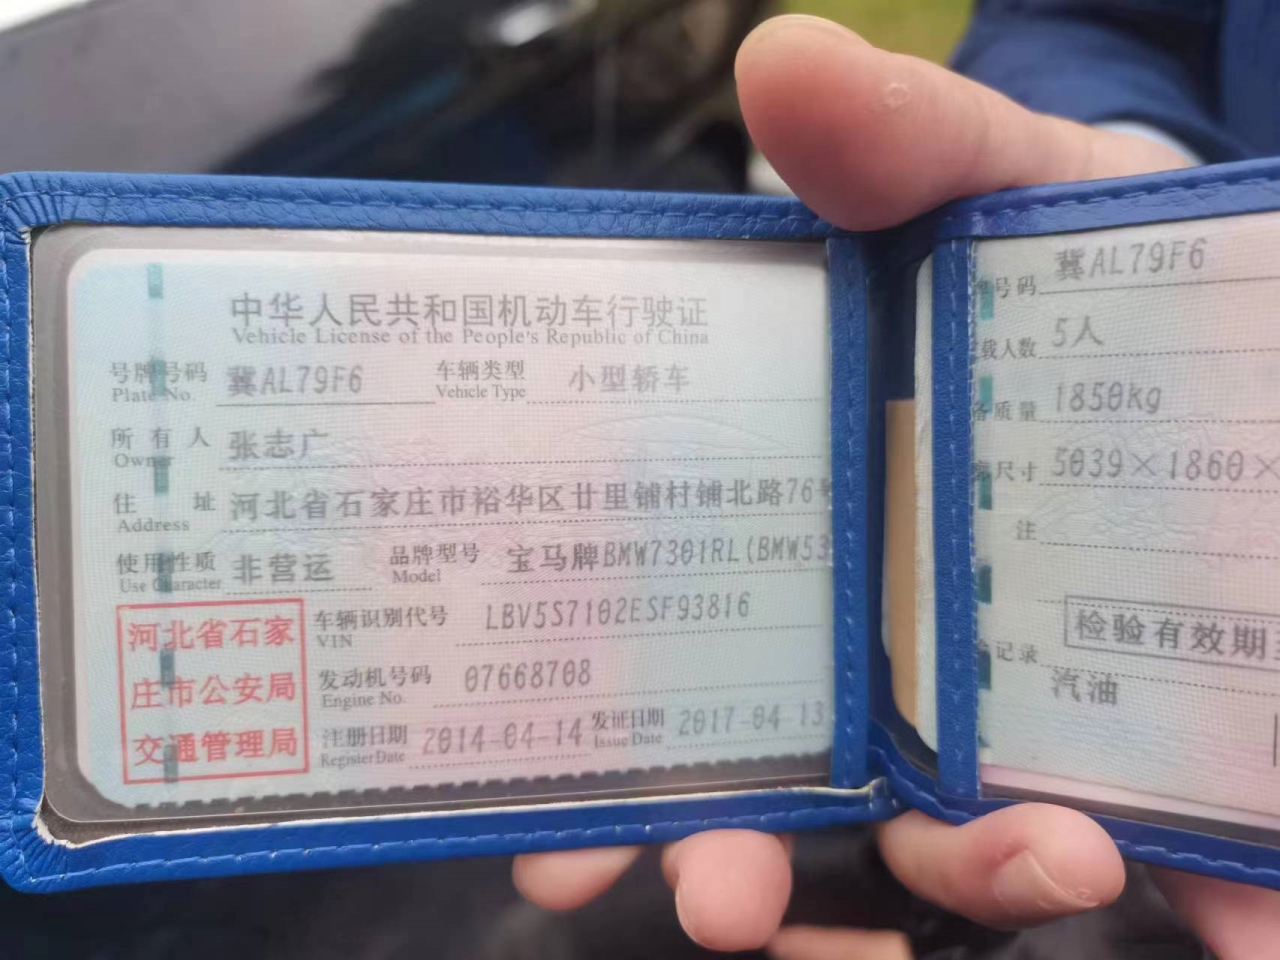 中华人民共和国机动车行驶证
Vehicle License of the People's Republic of China
号牌号码 冀AL79F6 车辆类型 小型轿车
Plate No. Vehicle Type
所有人 张志广
Owner
住址 河北省石家庄市裕华区廿里铺村铺北路76号
Address
使用性质 非营运 品牌型号 宝马牌BMW7301RL(BMW53
Use Character Model
河北省石家
庄市公安局
交通管理局
车辆识别代号 LBV5S7102ESF93816
VIN
发动机号码 07668708
Engine No.
注册日期 2014-04-14 发证日期 2017-04-13
Register Date Issue Date
号码 冀AL79F6
载人数 5人
质量 1850kg
尺寸 5039×1860×
注
检验有效期
记录
汽油